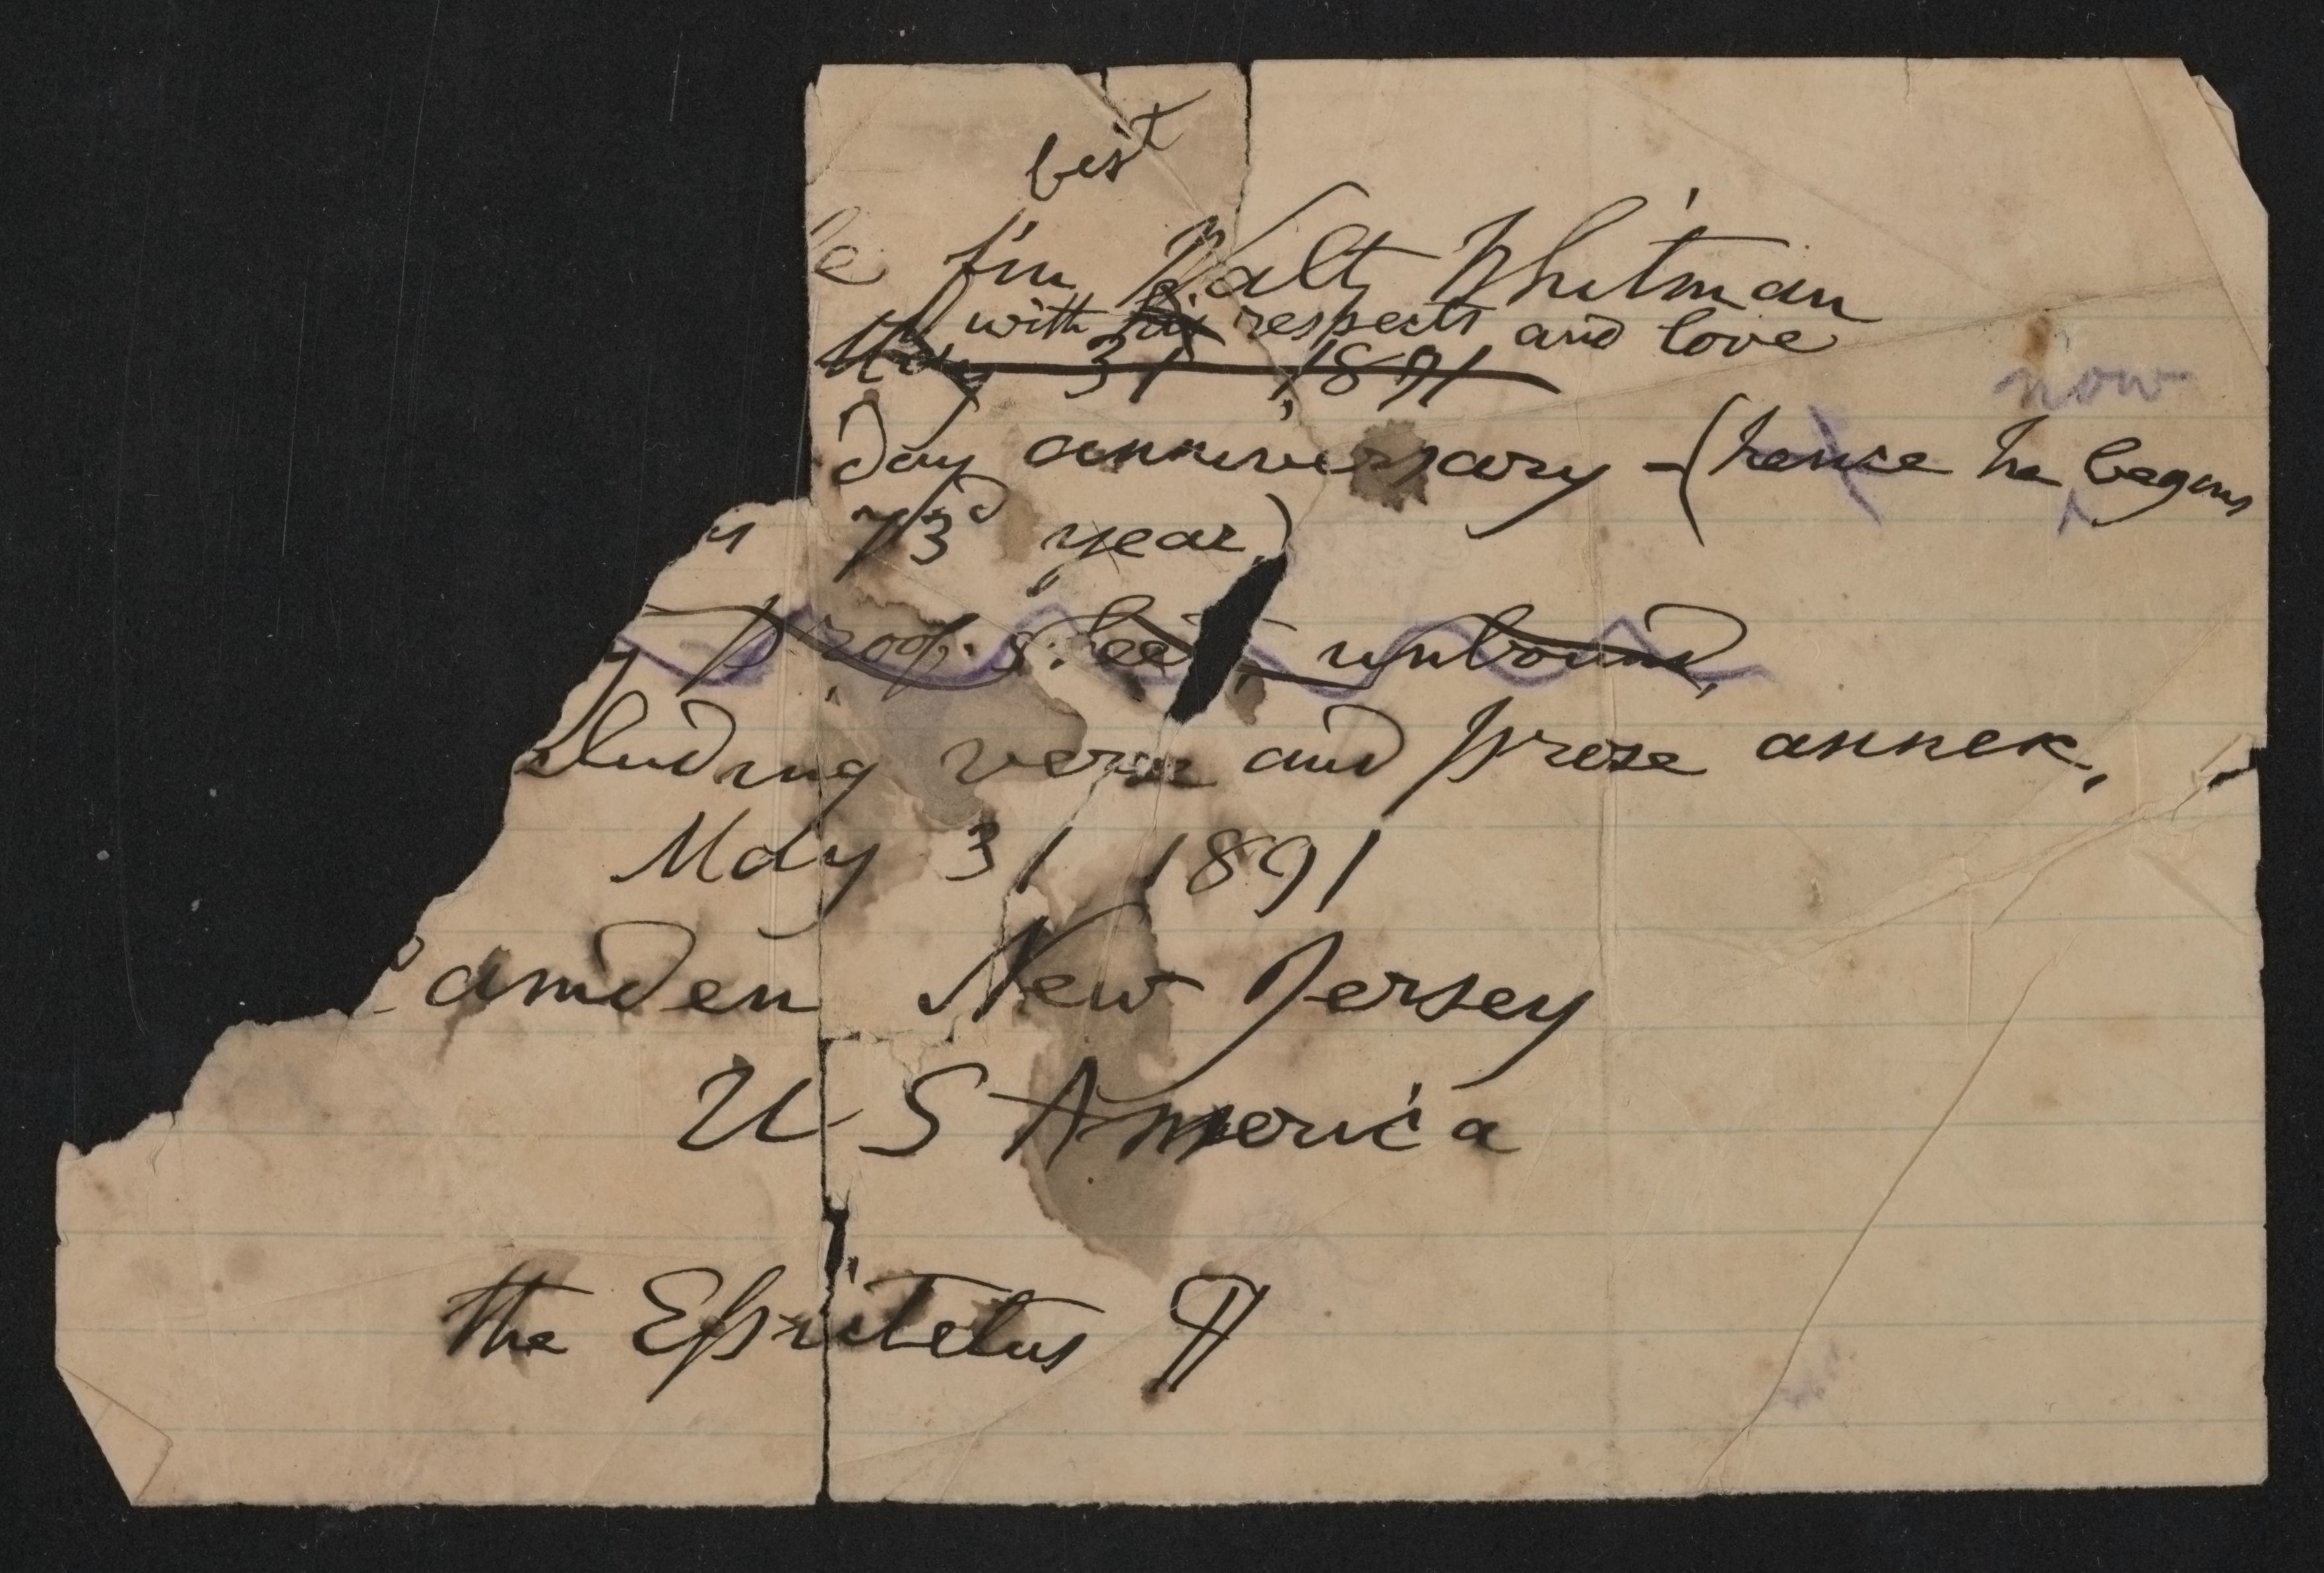 best
fm Walt Whitman
with his respects and love
May 31 1891
day anniversary - (hence he now begins
73d year)
proof. sheets, unbound,
luding verse and prose annex,
May 31 1891
Camden New Jersey
U S America
the Epictetus ¶